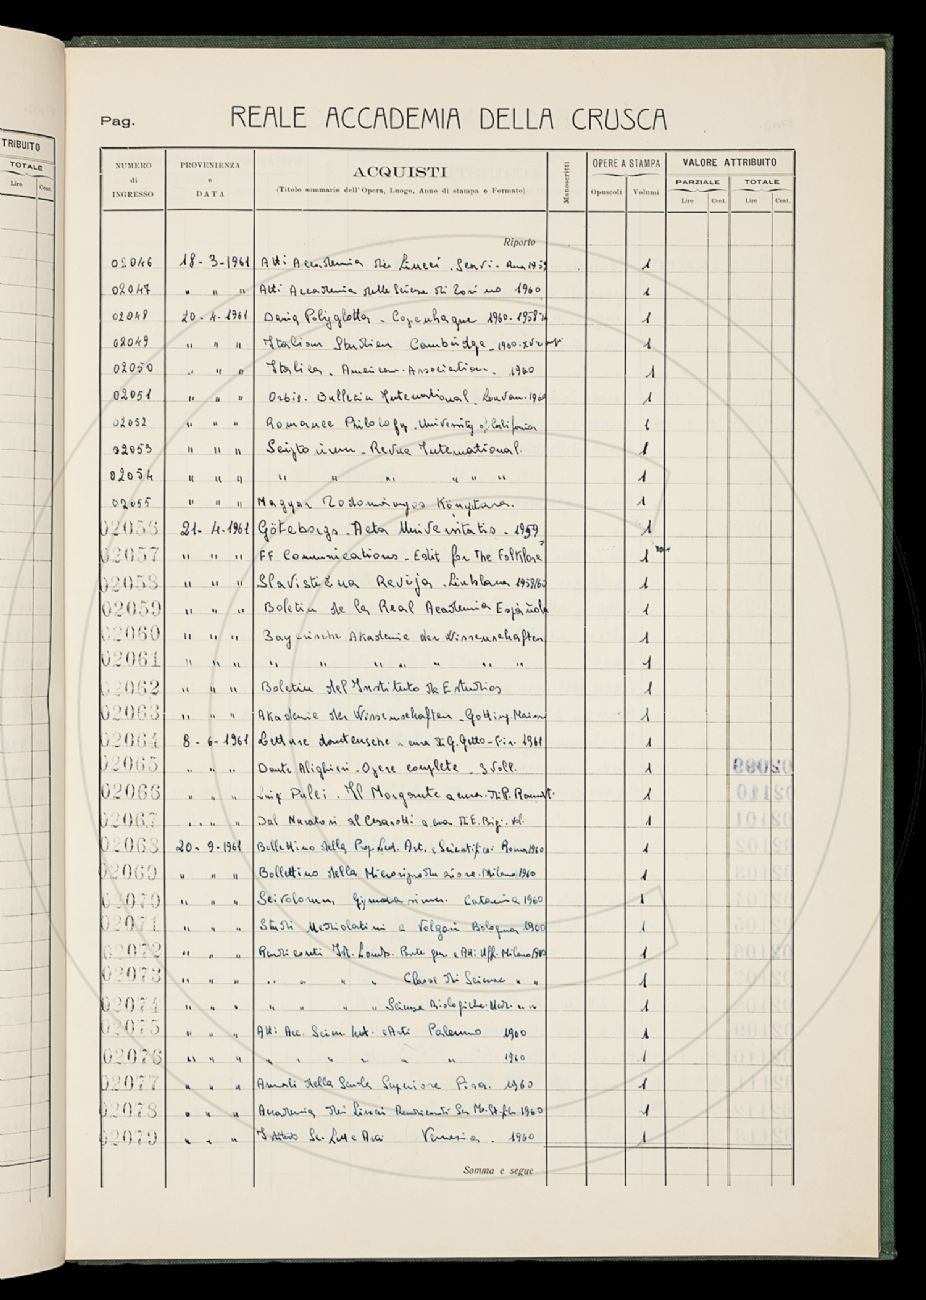 TRIBUITO
TOTALE
Lire Cent.
Pag. REALE ACCADEMIA DELLA CRUSCA
NUMERO di INGRESSO
PROVENIENZA e DATA
ACQUISTI
(Titolo sommario dell'Opera, Luogo, Anno di stampa e Formato)
Manoscritti
OPERE A STAMPA
Opuscoli Volumi
VALORE ATTRIBUITO
PARZIALE TOTALE
Lire Cent. Lire Cent.
Riporto
02046 18-3-1961 Atti Accademia dei Lincei. Scavi. Anno 1959 1
02047 " " " Atti Accademia delle Scienze di Torino 1960 1
02048 20-4-1961 Dania Polyglotta - Copenhague 1960-1958 1
02049 " " " Italian Studies Cambridge - 1960 - 1
02050 " " " Italica. American Association. 1960 1
02051 " " " Orbis. Bulletin International. Louvain. 1960 1
02052 " " " Romance Philology. University of California 1
02053 " " " Scriptorium - Revue International. 1
02054 " " " " " " " " " 1
02055 " " " Magyar Tudományos Könyvtara. 1
02056 21-4-1961 Göteborgs - Acta Universitatis. 1959 1
02057 " " " FF Communications - Edit for the Folklore 1
02058 " " " Slavistična Revija. Liubliana 1959/60 1
02059 " " " Boletin de la Real Academia Española 1
02060 " " " Bayerische Akademie der Wissenschaften 1
02061 " " " " " " " " " " 1
02062 " " " Boletin del Instituto de Estudios 1
02063 " " " Akademie der Wissenschaften - Götting. 1
02064 8-6-1961 Letture dantesche a cura di G. Getto - Fir. 1961 1
02065 " " " Dante Alighieri - Opere complete - 3 Voll. 1
02066 " " " Luigi Pulci. Il Morgante a cura di 1
02067 " " " Dal Muratori al Cesarotti a cura di E. Bigi. Vol. 1
02068 20-9-1961 Bollettino della Prop. Lett. Art. e Scientifica Roma 1960 1
02069 " " " Bollettino della Microriproduzione. Milano 1960 1
02070 " " " Siculorum Gymnasium. Catania 1960 1
02071 " " " Studi Mediolatini e Volgari Bologna 1960 1
02072 " " " Rendiconti Ist. Lomb. Parte gen. e Atti Uff. Milano 1960 1
02073 " " " " " " " Classe di Scienze " " 1
02074 " " " " " " " Scienze Biologiche. Med. " " 1
02075 " " " Atti Acc. Scien. Lett. e Arti Palermo 1960 1
02076 " " " " " " " " " 1960 1
02077 " " " Annali della Scuola Superiore Pisa. 1960 1
02078 " " " Accademia dei Lincei Rendiconti Sc. Mo. St. filo. 1960 1
02079 " " " Istituto Sc. Lett. e Arti Venezia. 1960 1
Somma e segue